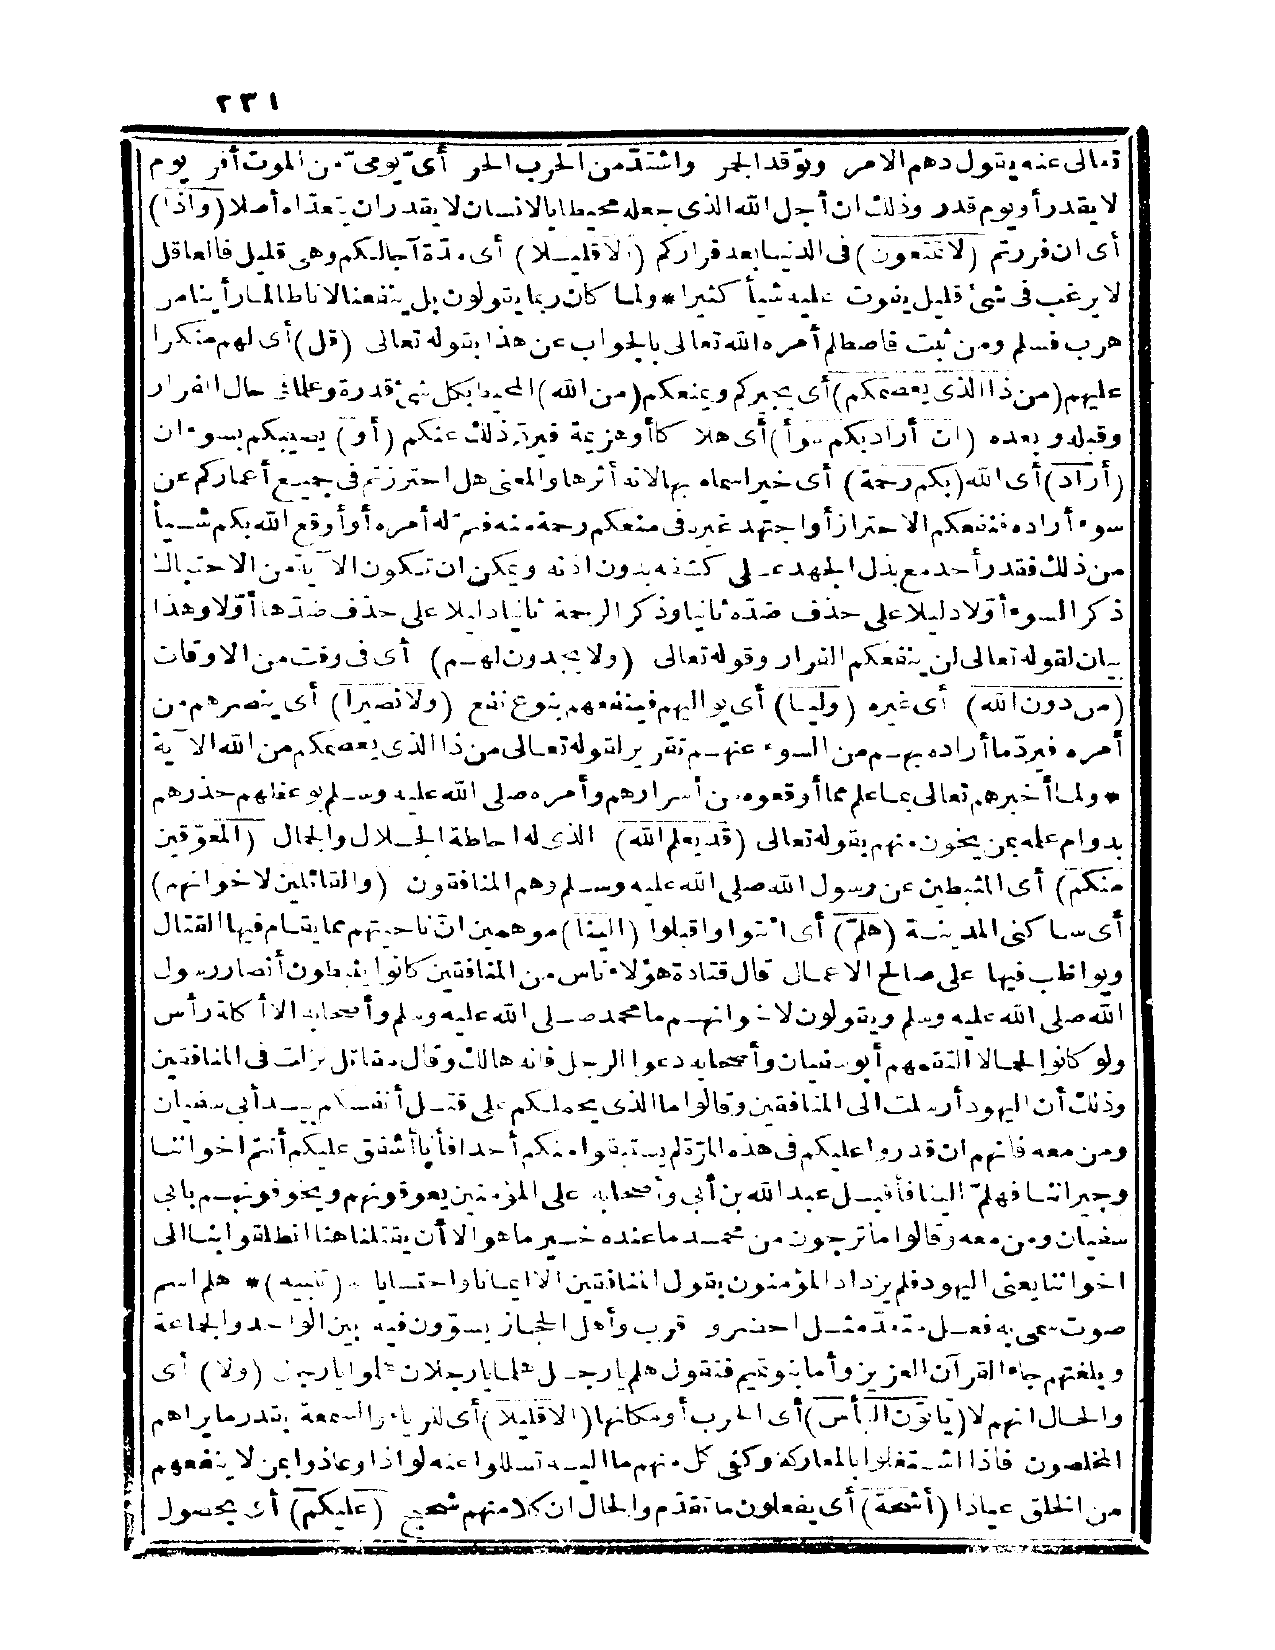 ٢٣١
تعالى عنه يقول دهم الامر وتوقد الجمر واشتد من الحرب الحر أى يومى من الموت أفر يوم
لا يقدر أو يوم قدر وذلك ان أجل الله الذى جعله محيطا بالانسان لا يقدر ان يتعداه أصلا (واذا)
أى ان فررتم (لا تمتعون) فى الدنيا بعد فراركم (الا قليلا) أى مدة آجالكم وهى قليل فالعاقل
لا يرغب فى شئ قليل يفوت عليه شيأ كثيرا * ولما كان ربما يقولون بل ينفعنا لانا طالما رأينا من
هرب فسلم ومن ثبت فاصطلم أمره الله تعالى بالجواب عن هذا بقوله تعالى (قل) أى لهم منكرا
عليهم (من ذا الذى يعصمكم) أى يجيركم ويمنعكم (من الله) المحيط بكل شئ قدرة وعلما فى حال الفرار
وقبله وبعده (ان أراد بكم سوأ) أى هلاكا أو هزيمة فيرد ذلك عنكم (أو) يصيبكم بسوء ان
(أراد) أى الله (بكم رحمة) أى خيرا سماه بها لانه أثرها والمعنى هل احترزتم فى جميع أعماركم عن
سوء أراده فنفعكم الاحتراز أو اجتهد غيره فى منعكم رحمة منه فتم له أمره أو أوقع الله بكم شيأ
من ذلك فقدر أحد مع بذل الجهد على كشفه بدون اذنه ويمكن ان تكون الآية من الاحتباك
ذكر السوء أولا دليلا على حذف ضده ثانيا وذكر الرحمة ثانيا دليلا على حذف ضدها أولا وهذا
بيان لقوله تعالى لن ينفعكم الفرار وقوله تعالى (ولا يجدون لهم) أى فى وقت من الاوقات
(من دون الله) أى غيره (وليا) أى يواليهم فينفعهم بنوع نفع (ولا نصيرا) أى ينصرهم من
أمره فيرد ما أراده بهم من السوء عنهم تقرير لقوله تعالى من ذا الذى يعصمكم من الله الآية
* ولما أخبرهم تعالى بما علم مما أوقعوه من أسرارهم وأمره صلى الله عليه وسلم بوعظهم حذرهم
بدوام علمه بمن يخون منهم بقوله تعالى (قد يعلم الله) الذى له احاطة الجلال والجمال (المعوّقين
منكم) أى المثبطين عن رسول الله صلى الله عليه وسلم وهم المنافقون (والقائلين لاخوانهم)
أى ساكنى المدينة (هلم) أى ائتوا واقبلوا (الينا) موهمين ان ناحيتهم مما يقام فيها القتال
ويواظب فيها على صالح الاعمال قال قتادة هؤلاء ناس من المنافقين كانوا يثبطون أنصار رسول
الله صلى الله عليه وسلم ويقولون لاخوانهم ما محمد صلى الله عليه وسلم وأصحابه الا أكلة رأس
ولو كانوا لحما لالتقمهم أبو سفيان وأصحابه دعوا الرجل فانه هالك وقال مقاتل نزلت فى المنافقين
وذلك أن اليهود أرسلت الى المنافقين وقالوا ما الذى يحملكم على قتل أنفسكم بيد أبى سفيان
ومن معه فانهم ان قدروا عليكم فى هذه المرة لم يستبقوا منكم أحدا فأنا أشفق عليكم أنتم اخواننا
وجيراننا فهلم الينا فأقبل عبد الله بن أبى وأصحابه على المؤمنين يعوقونهم ويخوفونهم بأبى
سفيان ومن معه وقالوا ما ترجون من محمد ما عنده خير ما هو الا أن يقتلنا هنا انطلقوا بنا الى
اخواننا يعنى اليهود فلم يزداد المؤمنون بقول المنافقين الا ايمانا واحتسابا * (تنبيه) * هلم اسم
صوت سمى به فعل متعد مثل احضر وقرب وأهل الحجاز يسوّون فيه بين الواحد والجماعة
وبلغتهم جاء القرآن العزيز وأما بنو تميم فتقول هلم يا رجل هلما يا رجلان هلموا يا رجال (ولا) أى
والحال انهم لا (يأتون البأس) أى الحرب أو مكانها (الا قليلا) أى للرياء والسمعة بقدر ما يراهم
المخلصون فاذا اشتغلوا بالمعاركة وكفى كل منهم ما اليه تسللوا عنه لواذا وعاذوا بمن لا ينفعهم
من الخلق عياذا (أشحة) أى يفعلون ما تقدم والحال ان كلا منهم شحيح (عليكم) أى بحصول